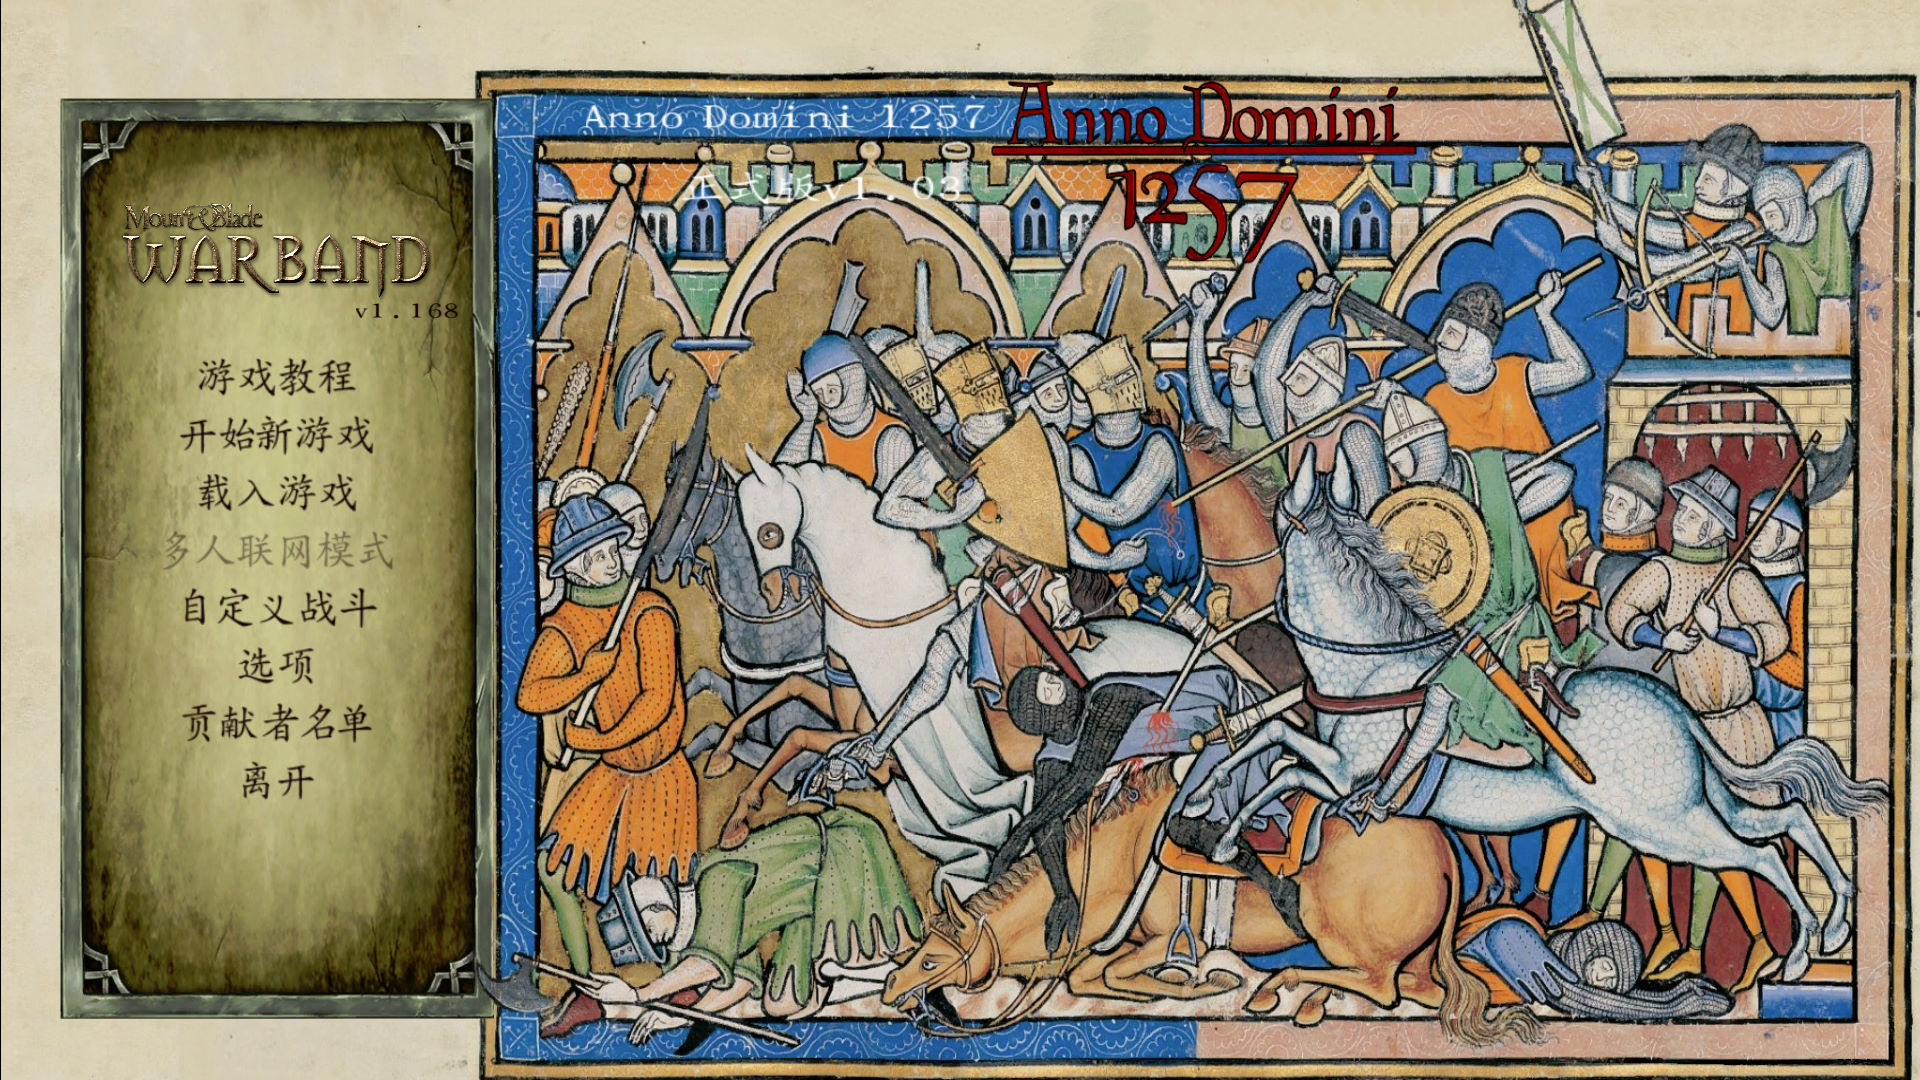 Mount&Blade
WARBAND
v1.168
游戏教程
开始新游戏
载入游戏
多人联网模式
自定义战斗
选项
贡献者名单
离开
Anno Domini 1257
正式版v1.03
Anno Domini
1257